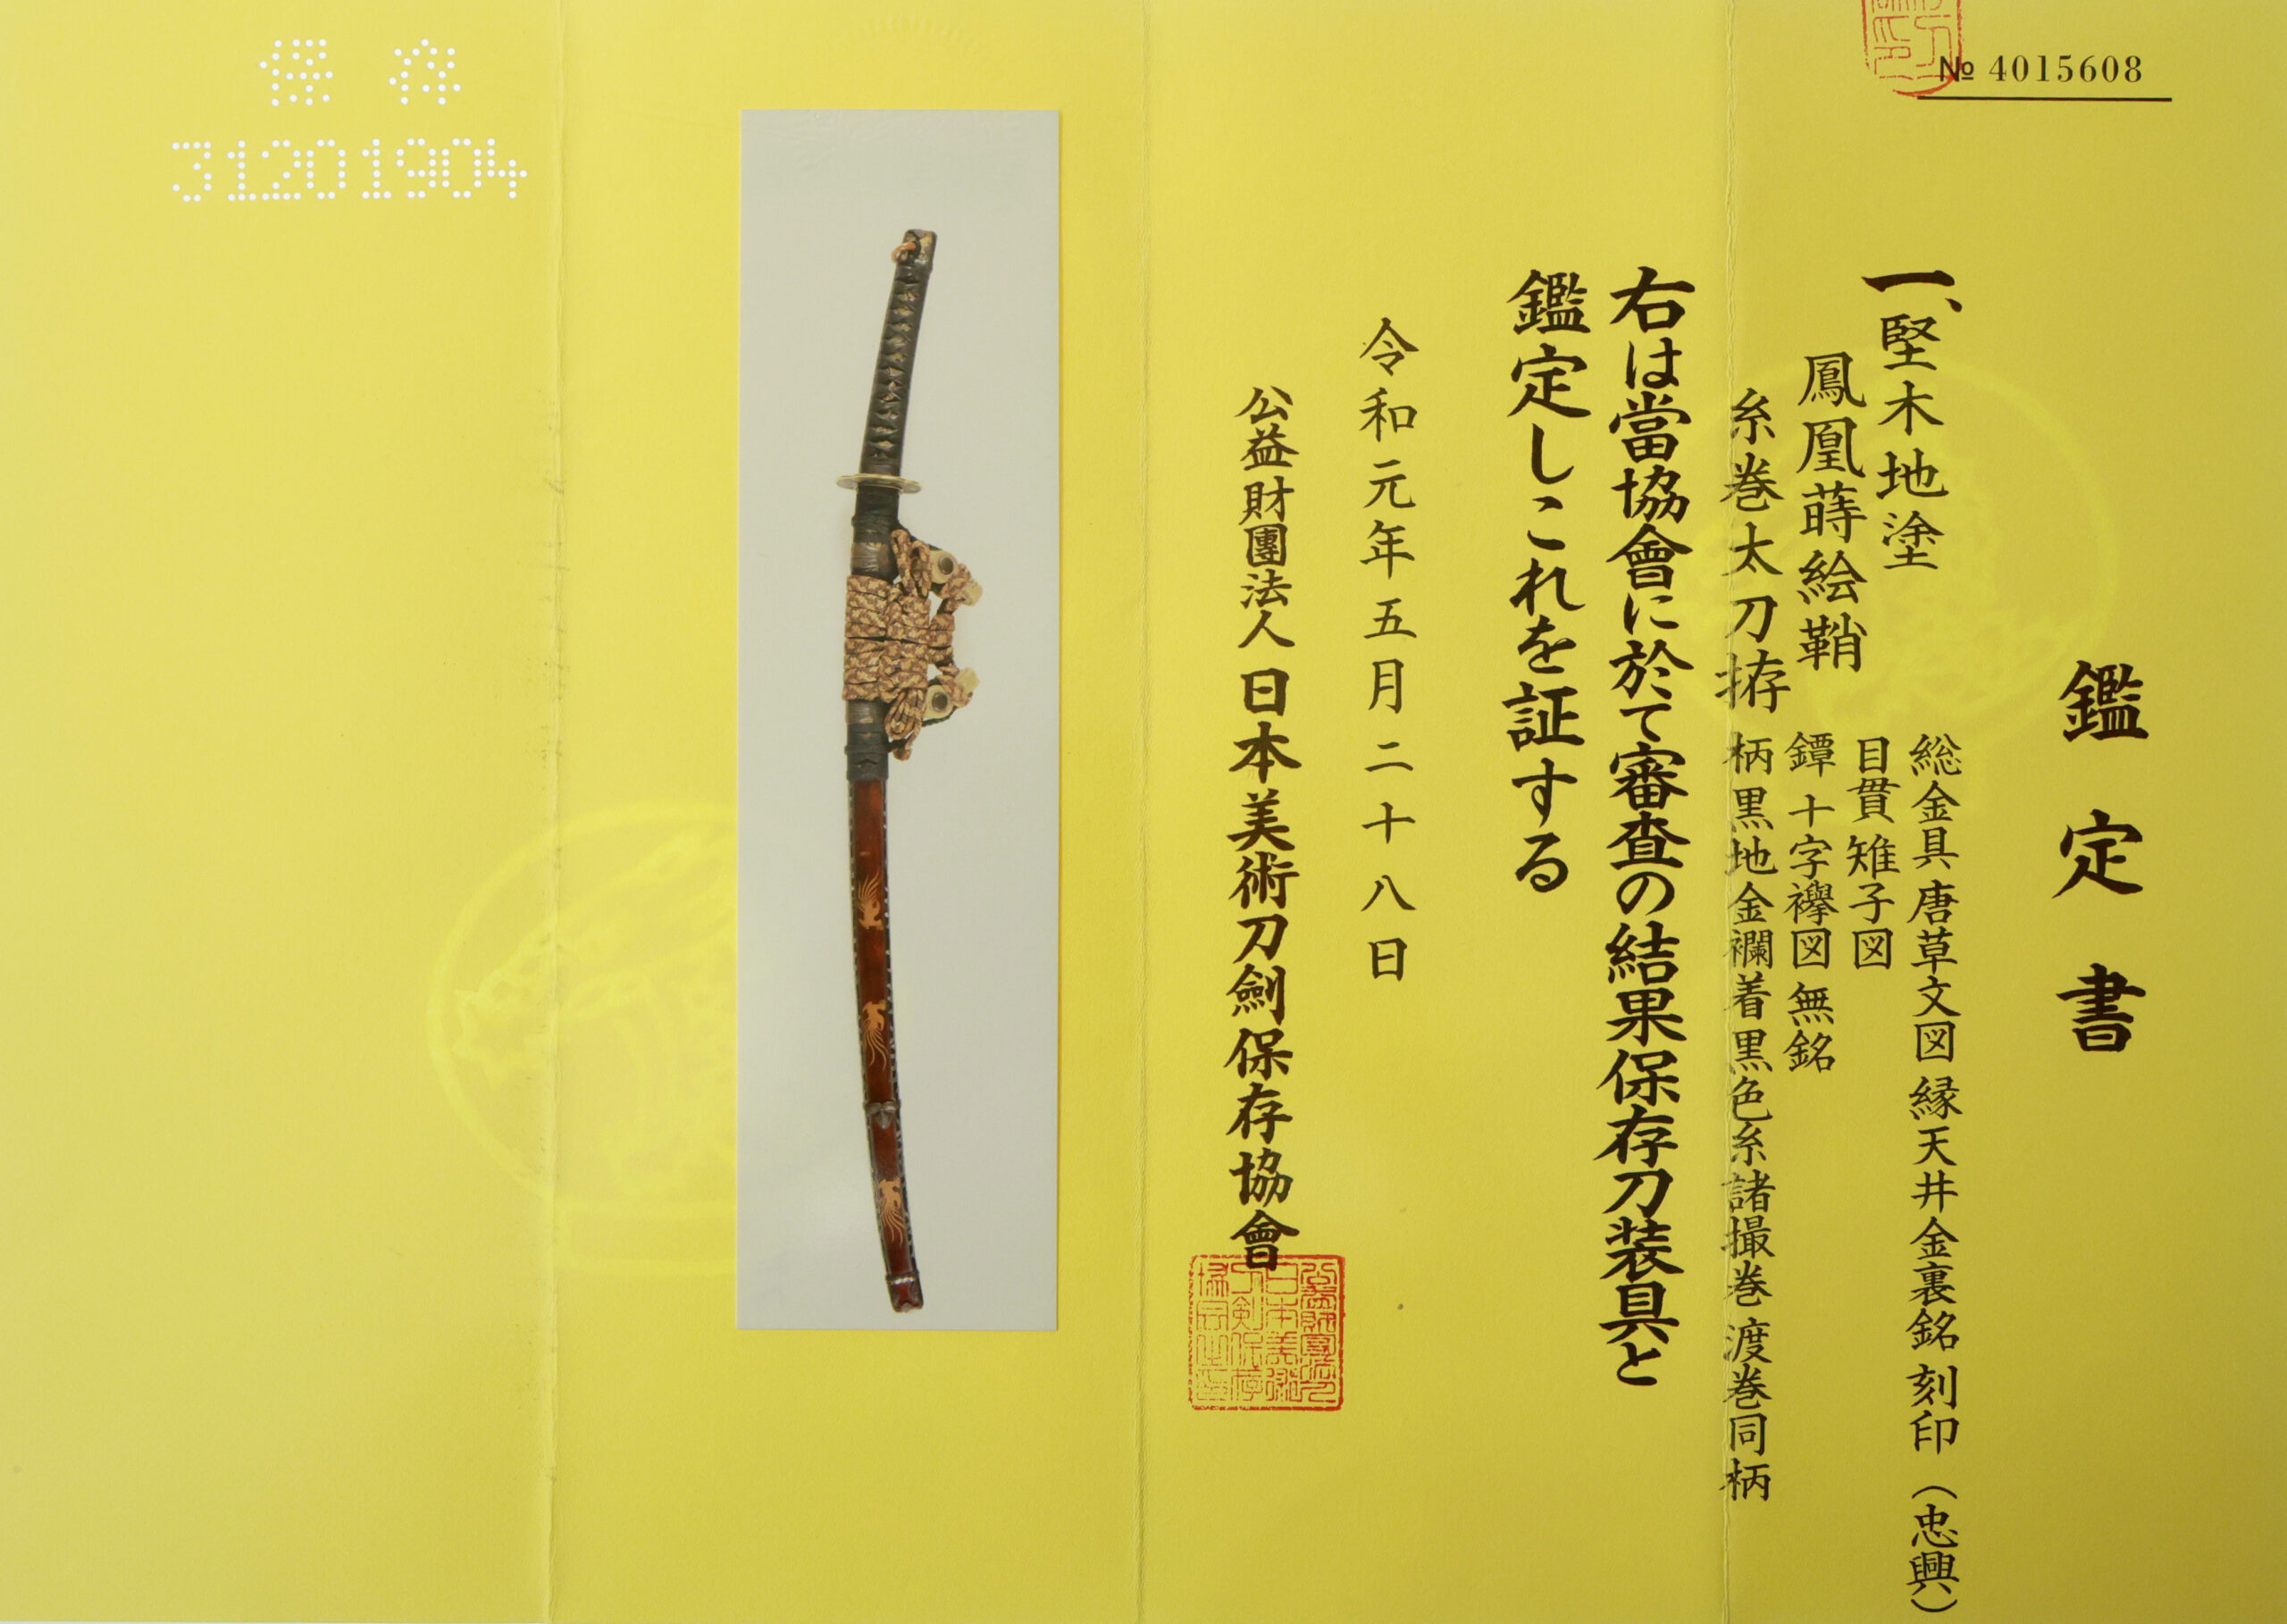 № 4015608
鑑定書
一、堅木地塗
鳳凰蒔絵鞘
糸巻太刀拵
総金具唐草文図 縁天井金裏銘 刻印（忠興）
目貫 雉子図
鐔 十字襷図 無銘
柄 黒地金襴着黒色糸諸撮巻 渡巻同柄
右は當協會に於て審査の結果保存刀装具と
鑑定しこれを証する
令和元年五月二十八日
公益財團法人 日本美術刀劍保存協會
保存
31201904